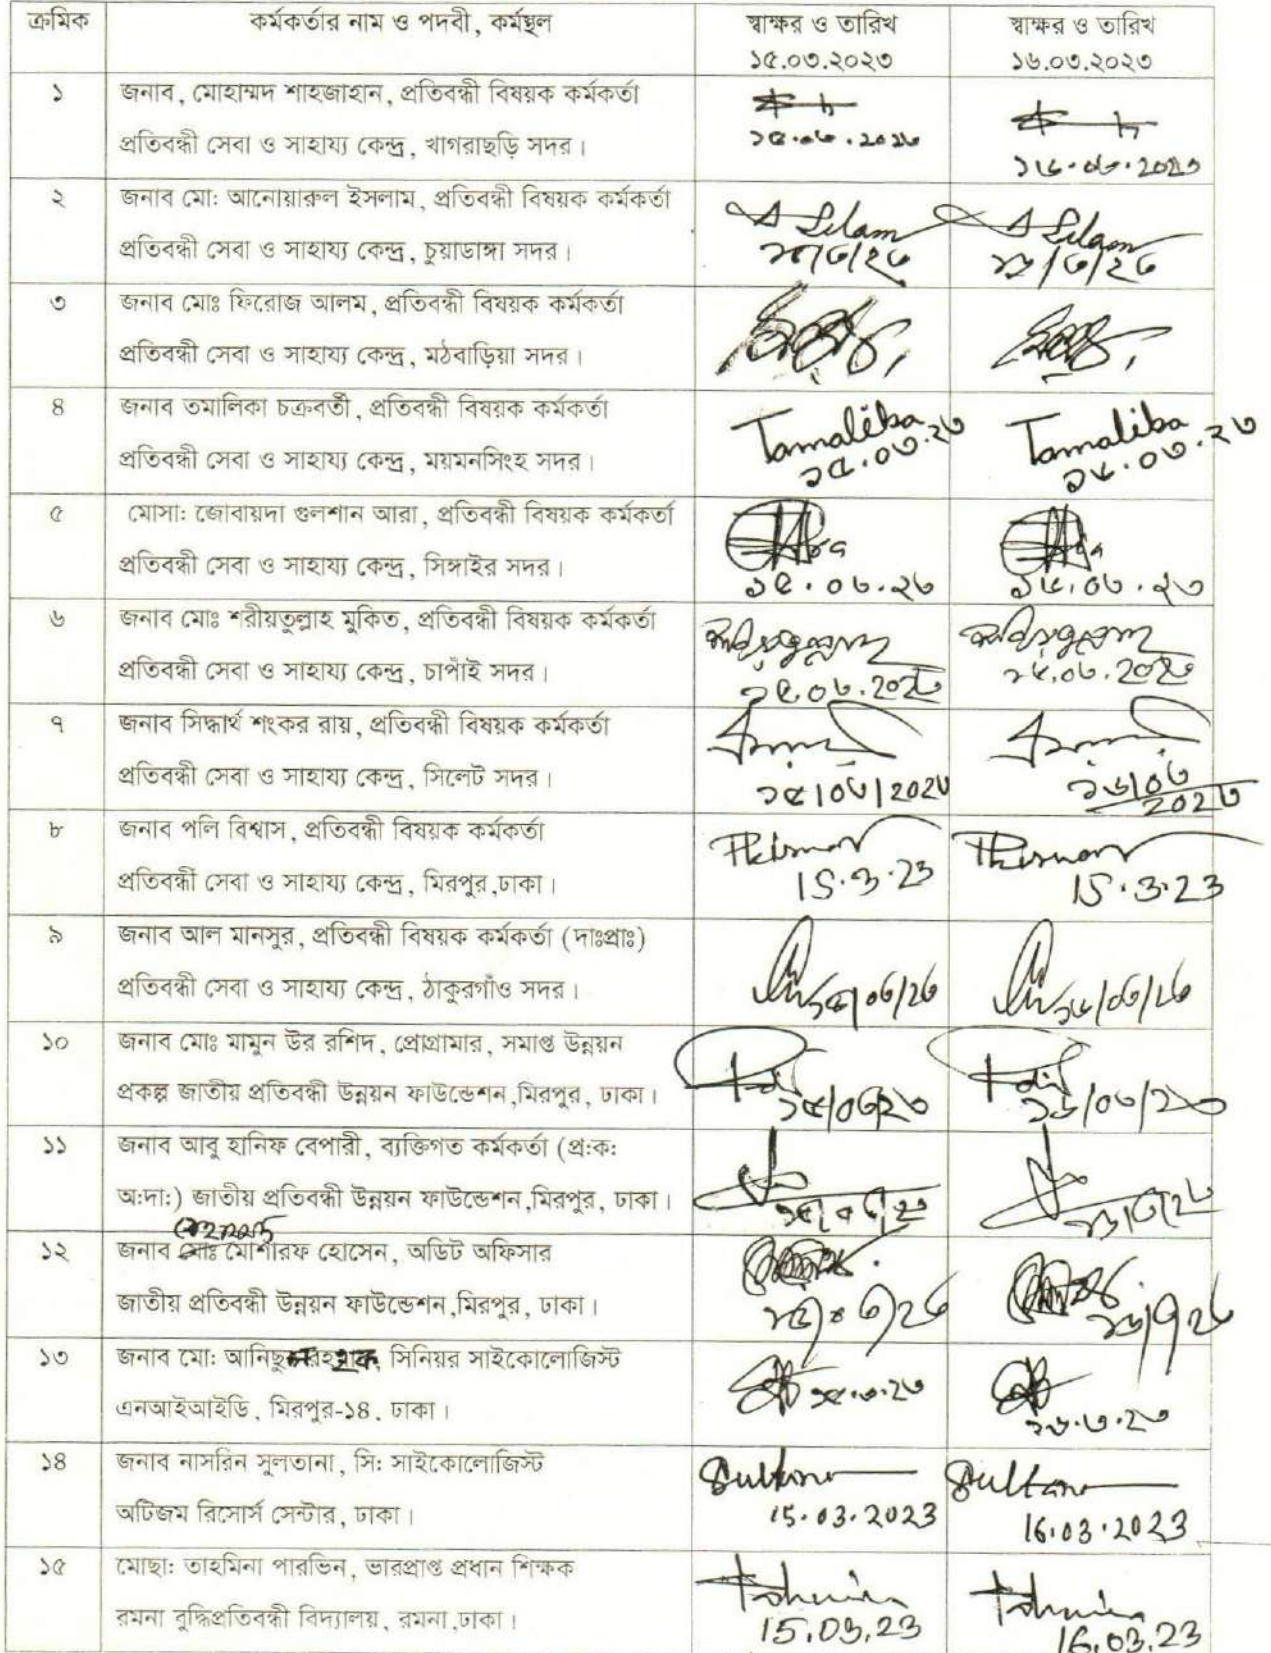 ক্রমিক কর্মকর্তার নাম ও পদবী, কর্মস্থল স্বাক্ষর ও তারিখ স্বাক্ষর ও তারিখ
১৫.০৩.২০২৩ ১৬.০৩.২০২৩
১ জনাব, মোহাম্মদ শাহজাহান, প্রতিবন্ধী বিষয়ক কর্মকর্তা
প্রতিবন্ধী সেবা ও সাহায্য কেন্দ্র, খাগরাছড়ি সদর।
১৫.০৩.২০২৩ ১৬.০৩.২০২৩
২ জনাব মো: আনোয়ারুল ইসলাম, প্রতিবন্ধী বিষয়ক কর্মকর্তা
প্রতিবন্ধী সেবা ও সাহায্য কেন্দ্র, চুয়াডাঙ্গা সদর।
৩ জনাব মোঃ ফিরোজ আলম, প্রতিবন্ধী বিষয়ক কর্মকর্তা
প্রতিবন্ধী সেবা ও সাহায্য কেন্দ্র, মঠবাড়িয়া সদর।
৪ জনাব তমালিকা চক্রবর্তী, প্রতিবন্ধী বিষয়ক কর্মকর্তা Tamalika Tamalika
প্রতিবন্ধী সেবা ও সাহায্য কেন্দ্র, ময়মনসিংহ সদর। ১৫.০৩.২৩ ১৬.০৩.২৩
৫ মোসা: জোবায়দা গুলশান আরা, প্রতিবন্ধী বিষয়ক কর্মকর্তা
প্রতিবন্ধী সেবা ও সাহায্য কেন্দ্র, সিঙ্গাইর সদর। ১৫.০৩.২৩ ১৬.০৩.২৩
৬ জনাব মোঃ শরীয়তুল্লাহ মুকিত, প্রতিবন্ধী বিষয়ক কর্মকর্তা
প্রতিবন্ধী সেবা ও সাহায্য কেন্দ্র, চাপাঁই সদর। ১৫.০৩.২০২৩ ১৬.০৩.২০২৩
৭ জনাব সিদ্ধার্থ শংকর রায়, প্রতিবন্ধী বিষয়ক কর্মকর্তা
প্রতিবন্ধী সেবা ও সাহায্য কেন্দ্র, সিলেট সদর। ১৫/০৩/২০২৩ ১৬/০৩/২০২৩
৮ জনাব পলি বিশ্বাস, প্রতিবন্ধী বিষয়ক কর্মকর্তা
প্রতিবন্ধী সেবা ও সাহায্য কেন্দ্র, মিরপুর,ঢাকা। 15.3.23 15.3.23
৯ জনাব আল মানসুর, প্রতিবন্ধী বিষয়ক কর্মকর্তা (দাঃপ্রাঃ)
প্রতিবন্ধী সেবা ও সাহায্য কেন্দ্র, ঠাকুরগাঁও সদর। ১৫/০৩/২৩ ১৬/০৩/২৩
১০ জনাব মোঃ মামুন উর রশিদ, প্রোগ্রামার, সমাপ্ত উন্নয়ন
প্রকল্প জাতীয় প্রতিবন্ধী উন্নয়ন ফাউন্ডেশন,মিরপুর, ঢাকা। ১৫/০৩/২৩ ১৬/০৩/২৩
১১ জনাব আবু হানিফ বেপারী, ব্যক্তিগত কর্মকর্তা (প্র:ক:
অ:দা:) জাতীয় প্রতিবন্ধী উন্নয়ন ফাউন্ডেশন,মিরপুর, ঢাকা।
১২ জনাব মোঃ মোশারফ হোসেন, অডিট অফিসার
জাতীয় প্রতিবন্ধী উন্নয়ন ফাউন্ডেশন,মিরপুর, ঢাকা।
১৩ জনাব মো: হক, সিনিয়র সাইকোলোজিস্ট
এনআইআইডি, মিরপুর-১৪, ঢাকা। ১৫.৩.২৩ ১৬.৩.২৩
১৪ জনাব নাসরিন সুলতানা, সি: সাইকোলোজিস্ট Sultana Sultana
অটিজম রিসোর্স সেন্টার, ঢাকা। 15.03.2023 16.03.2023
১৫ মোছা: তাহমিনা পারভিন, ভারপ্রাপ্ত প্রধান শিক্ষক
রমনা বুদ্ধিপ্রতিবন্ধী বিদ্যালয়, রমনা,ঢাকা। 15.03.23 16.03.23